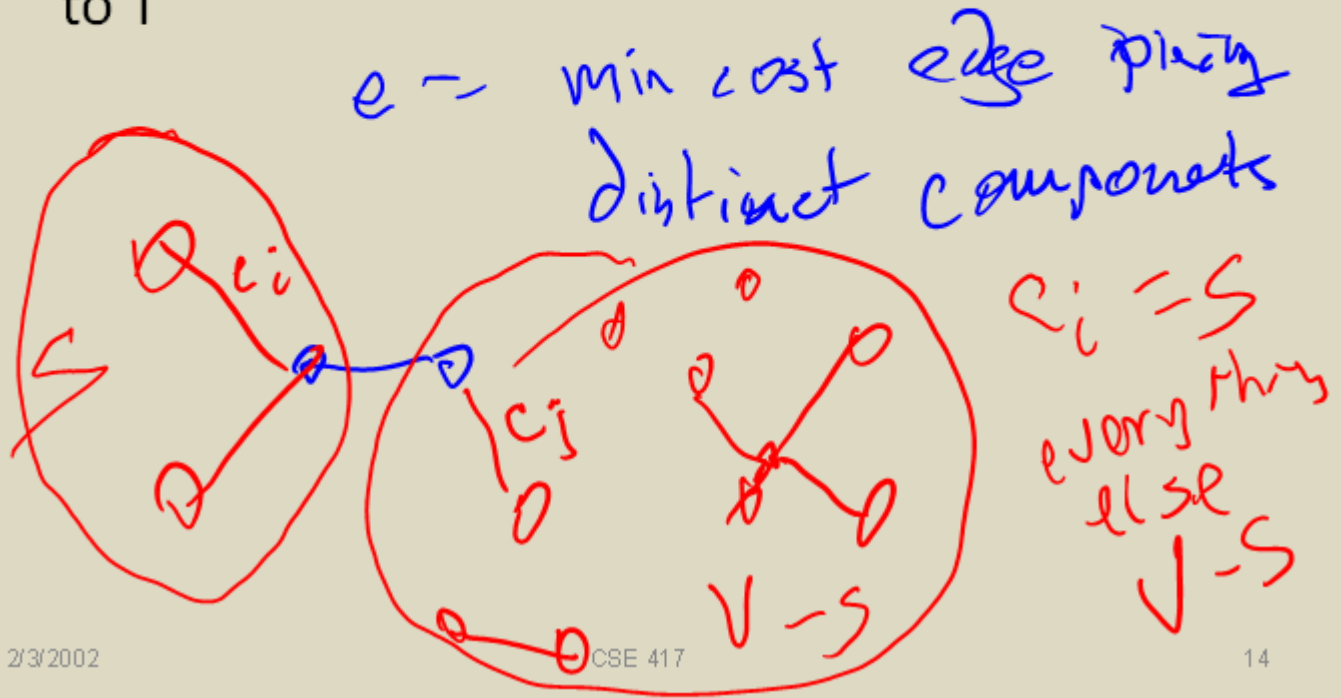 to T
e = min cost edge
distinct components
S
Ci
Cj
Ci = S
everything
else
V-S
V-S
2/3/2002
CSE 417
14